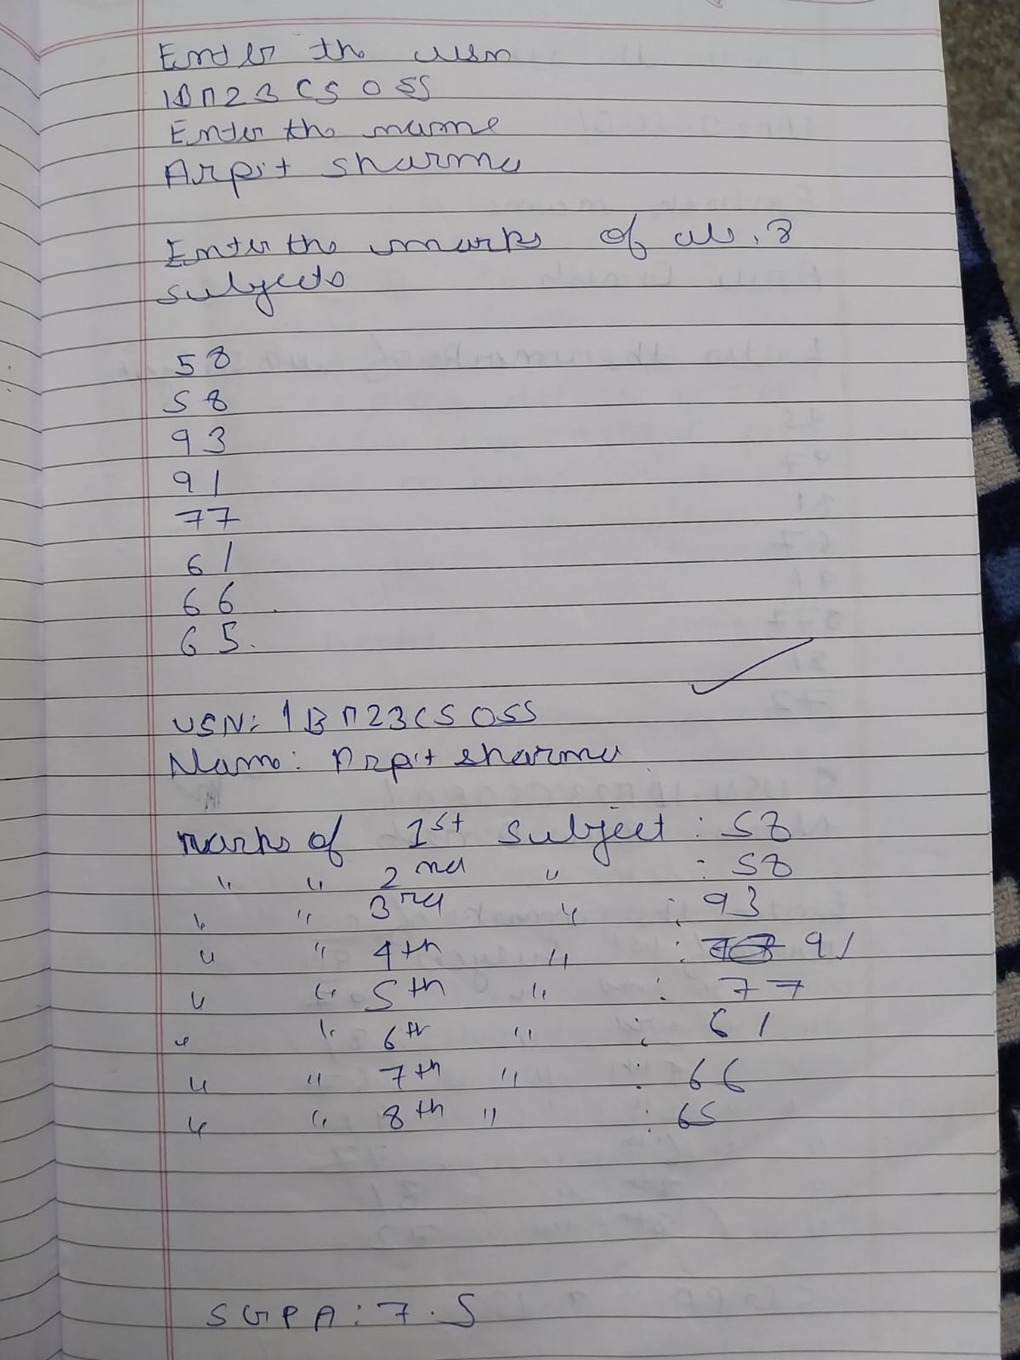 Enter the usn
1BM23CS055
Enter the name
Arpit sharma
Enter the marks of all 8
subjects
58
58
93
91
77
61
66
65.
USN: 1BM23CS055
Name: Arpit sharma
marks of 1st subject : 58
" " 2nd " : 58
" " 3rd " : 93
" " 4th " : 91
" " 5th " : 77
" " 6th " : 61
" " 7th " : 66
" " 8th " : 65
SGPA: 7.5